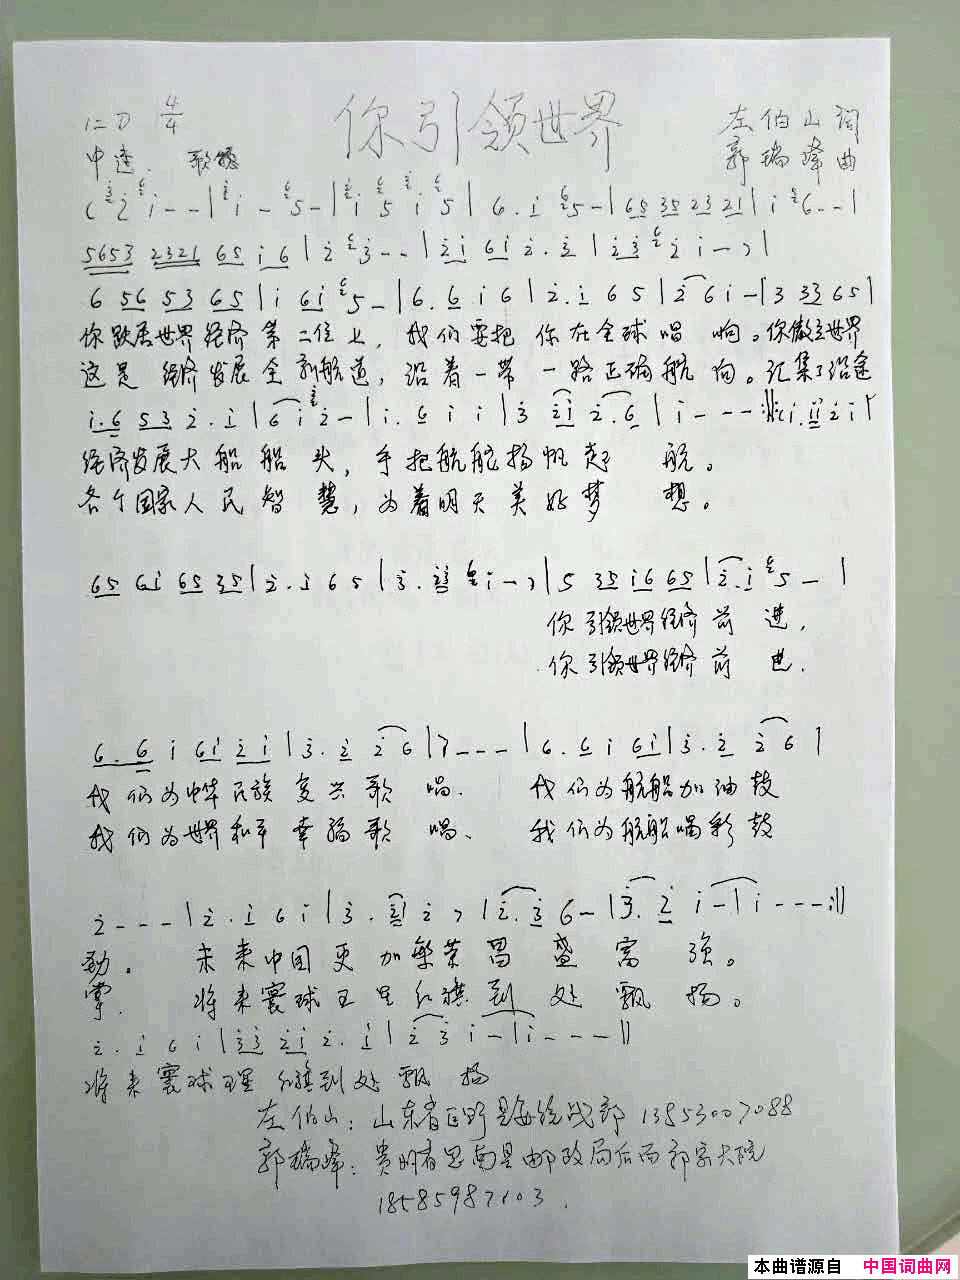 你引领世界
1=D 4/4
左伯山 词
中速. 歌颂
郭瑞峰 曲
(2 i - - | i - 5 - | i 5 i 5 | 6 . i 5 - | 65 35 23 21 | i 6 - - |
5653 2321 65 i 6 | 2 3 - - | 2 i 6 i 2 . 3 | 2 3 2 i - - ) |
6 56 53 65 | i 6i 5 - | 6 . 6 i 6 | 2 . i 6 5 | 2 6 i - | 3 33 65 |
你 世界经济第二位上，我们要把你在全球唱响。你傲立世界
这是经济发展全新航道，沿着一带一路正确航向。汇集了沿途
i . 6 53 2 . i | 6 i 2 - | i . 6 i i | 3 2i 2 . 6 | i - - - :|| i i . ii 2 i |
经济发展大船船头，手把航舵扬帆起航。
各个国家人民智慧，为着明天美好梦想。
65 6i 65 35 | 2 . i 6 5 | 3 . i - - ) | 5 35 i6 65 | 2 . i 5 - |
你引领世界经济前进，
你引领世界经济前进.
6 . 6 i 6i 2i | 3 . 2 2 6 | 7 - - - | 6 . 6 i 6i | 3 . 2 2 6 |
我们为中华民族复兴歌唱. 我们为航船加油鼓
我们为世界和平幸福歌唱、 我们为航船喝彩鼓
2 - - - | 2 . i 6 i | 3 . 2 7 | 2 . 3 6 - | 3 . 2 i - | i - - - :||
劲。 未来中国更加繁荣昌盛富强。
掌. 将来寰球五星红旗到处飘扬。
2 . i 6 i | 33 2i 2 . i | 2 3 i - | i - - - ||
将来寰球五星红旗到处飘扬
左伯山：山东省巨野县委统战部 13853007088
郭瑞峰：贵州省思南县邮政局后面郭家大院
18585987103.
本曲谱源自 中国词曲网